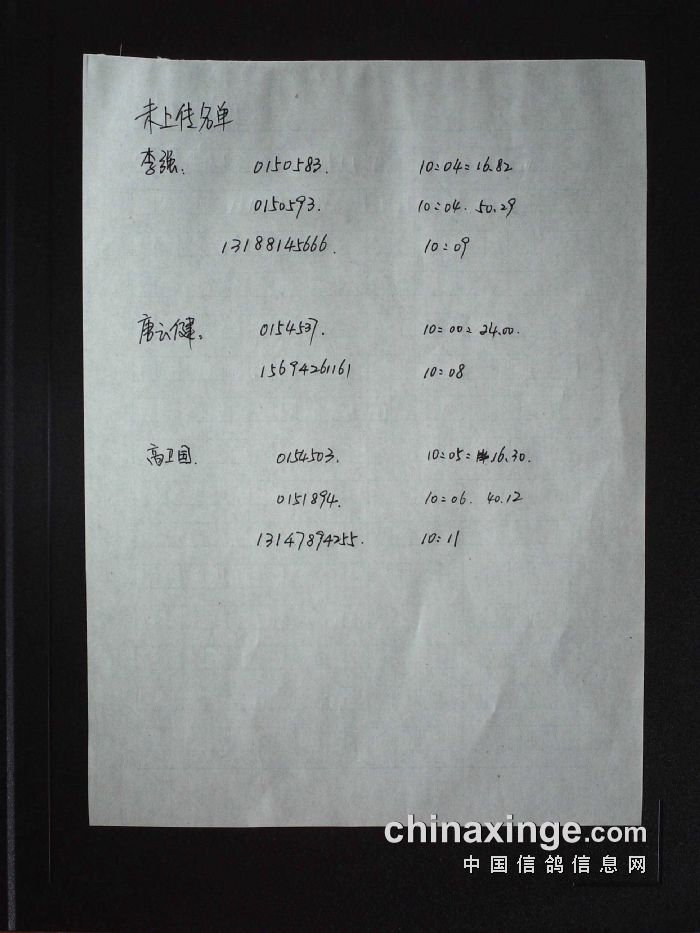 未上传名单
李强: 0150583. 10:04:16.82
0150593. 10:04. 50.29
13188145666. 10:09
唐云健: 0154537. 10:00:24.00.
15694261161 10:08
高卫国. 0154503. 10:05:16.30.
0151894. 10:06. 40.12
13147894255. 10:11
chinaxinge.com
中国信鸽信息网